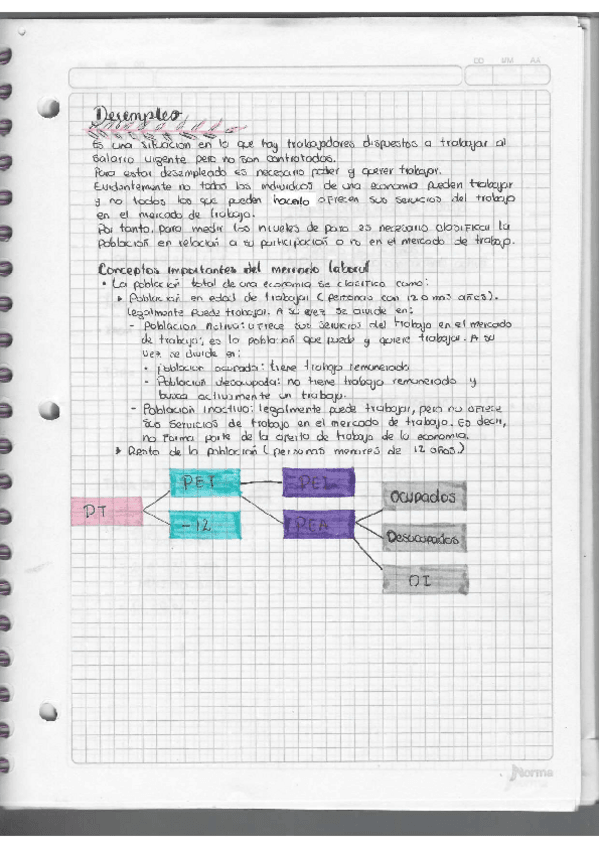 DD MM AA
Desempleo
Es una situación en la que hay trabajadores dispuestos a trabajar al
salario urgente pero no son contratados.
Para estar desempleado es necesario poder y querer trabajar.
Evidentemente no todos los individuos de una economia pueden trabajar
y no todos los que pueden hacerlo ofrecen sus servicios del trabajo
en el mercado de trabajo.
Por tanto, para medir los niveles de paro es necesario clasificar la
población en relación a su participación o no en el mercado de trabajo.
Conceptos importantes del mercado laboral
• La población total de una economia se clasifica como:
Población en edad de trabajar (personas con 12 o mas años).
Legalmente puede trabajar. A su vez se divide en:
- Población Activa: ofrece sus servicios del trabajo en el mercado
de trabajo; es la población que puede y quiere trabajar. A su
vez se divide en:
• población ocupada: tiene trabajo remunerado
- Población desocupada: no tiene trabajo remunerado y
busca activamente un trabajo.
- Población inactiva: legalmente puede trabajar, pero no ofrece
sus servicios de trabajo en el mercado de trabajo. Es decir,
no forma parte de la oferta de trabajo de la economia.
Resto de la población (personas menores de 12 años.)
PET
PEI
Ocupados
PT
-12
PEA
Desocupados
OI
Norma